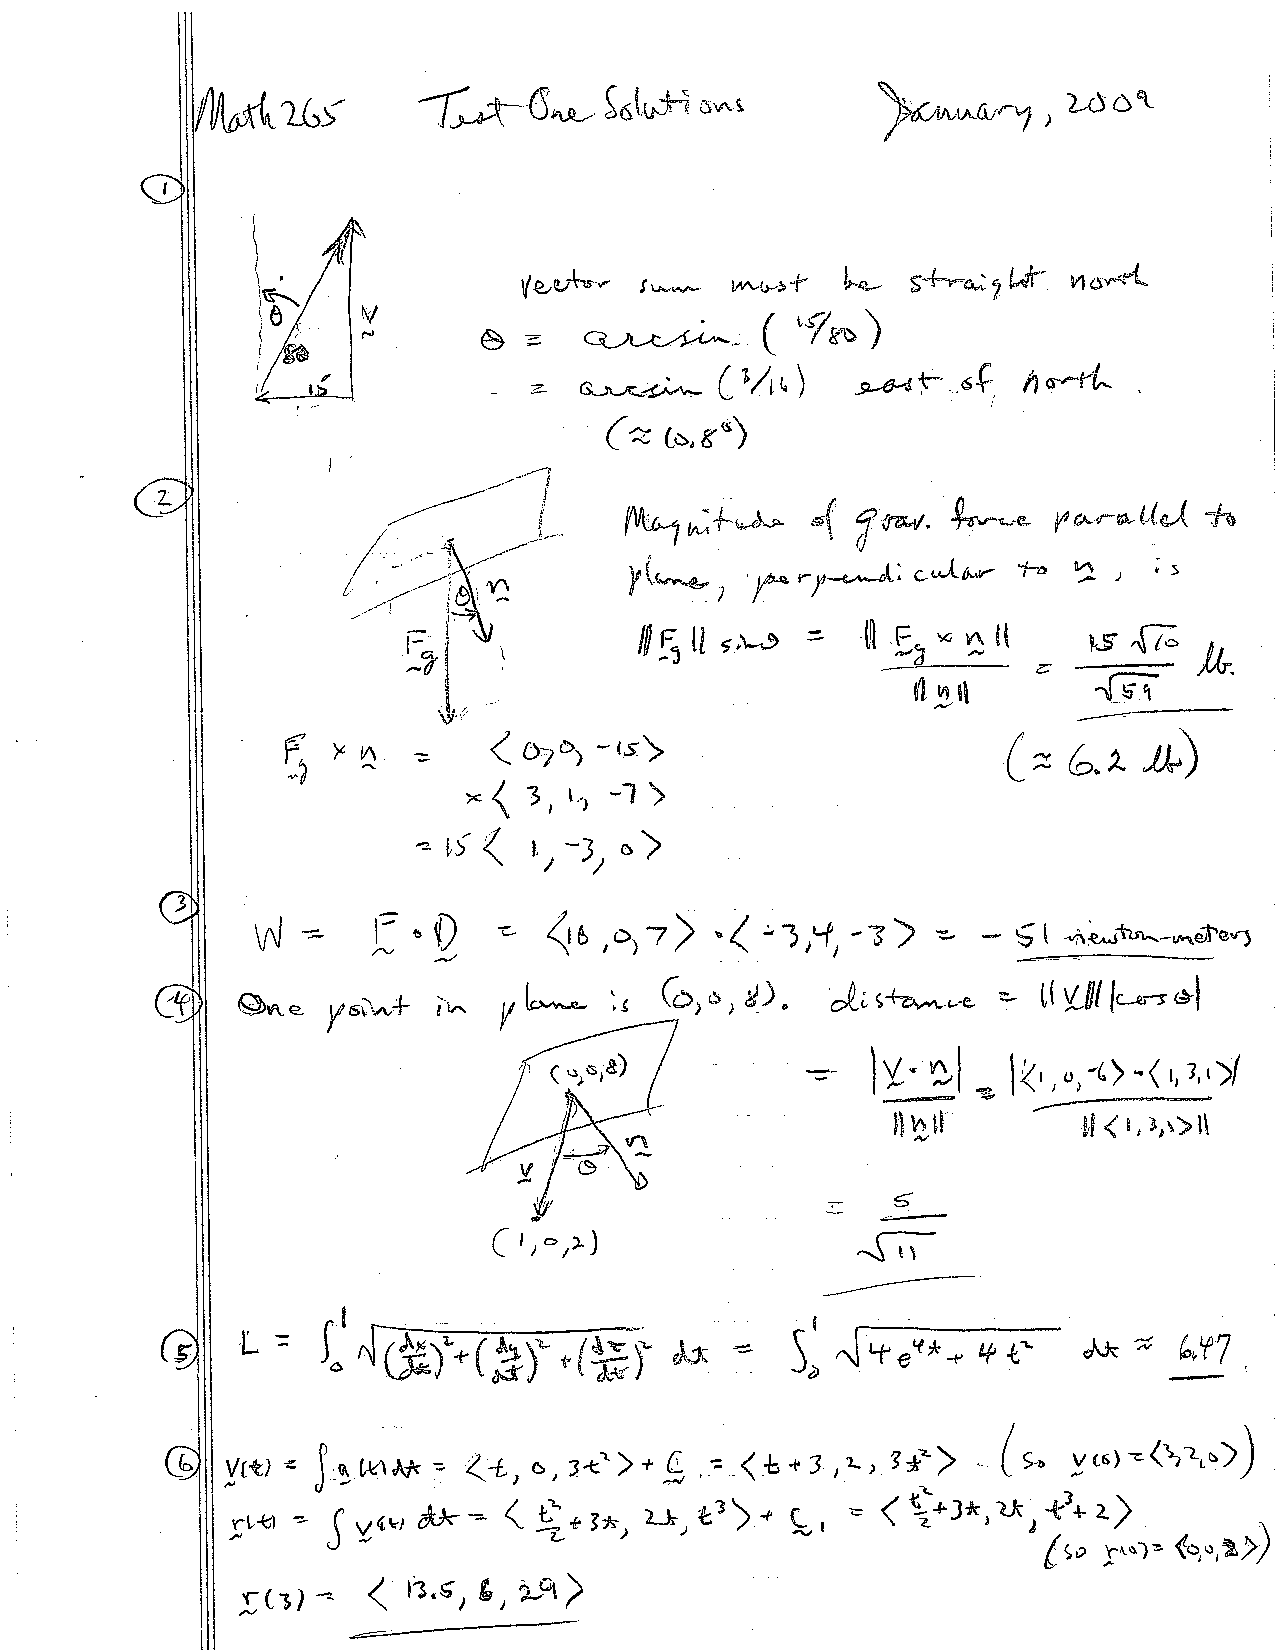 Math 265 Test One Solutions January, 2009
①
θ
80
v
15
vector sum must be straight north
θ = arcsin (15/80)
= arcsin (3/16) east of north.
(≈ 10.8°)
②
θ n
F_g
Magnitude of grav. force parallel to
plane, perpendicular to n, is
‖F_g‖ sin θ = ‖F_g × n‖ / ‖n‖ = 15 √10 / √59 lb.
(≈ 6.2 lb)
F_g × n = <0, 0, -15>
× <3, 1, -7>
= 15 <1, -3, 0>
③ W = F · D = <10, 0, 7> · <-3, 4, -3> = -51 newton-meters
④ One point in plane is (0, 0, 8). distance = ‖v‖ |cos θ|
(0,0,8)
v θ n
(1,0,2)
= |v · n| / ‖n‖ = |<1, 0, -6> · <1, 3, 1>| / ‖<1, 3, 1>‖
= 5 / √11
⑤ L = ∫₀¹ √((dx/dt)² + (dy/dt)² + (dz/dt)²) dt = ∫₀¹ √(4e^{4t} + 4t²) dt ≈ 6.47
⑥ v(t) = ∫ a(t) dt = <t, 0, 3t²> + C = <t+3, 2, 3t²> (so v(0) = <3,2,0>)
r(t) = ∫ v(t) dt = <t²/2 + 3t, 2t, t³> + C₁ = <t²/2 + 3t, 2t, t³+2>
(so r(0) = <0,0,2>)
r(3) = <13.5, 6, 29>